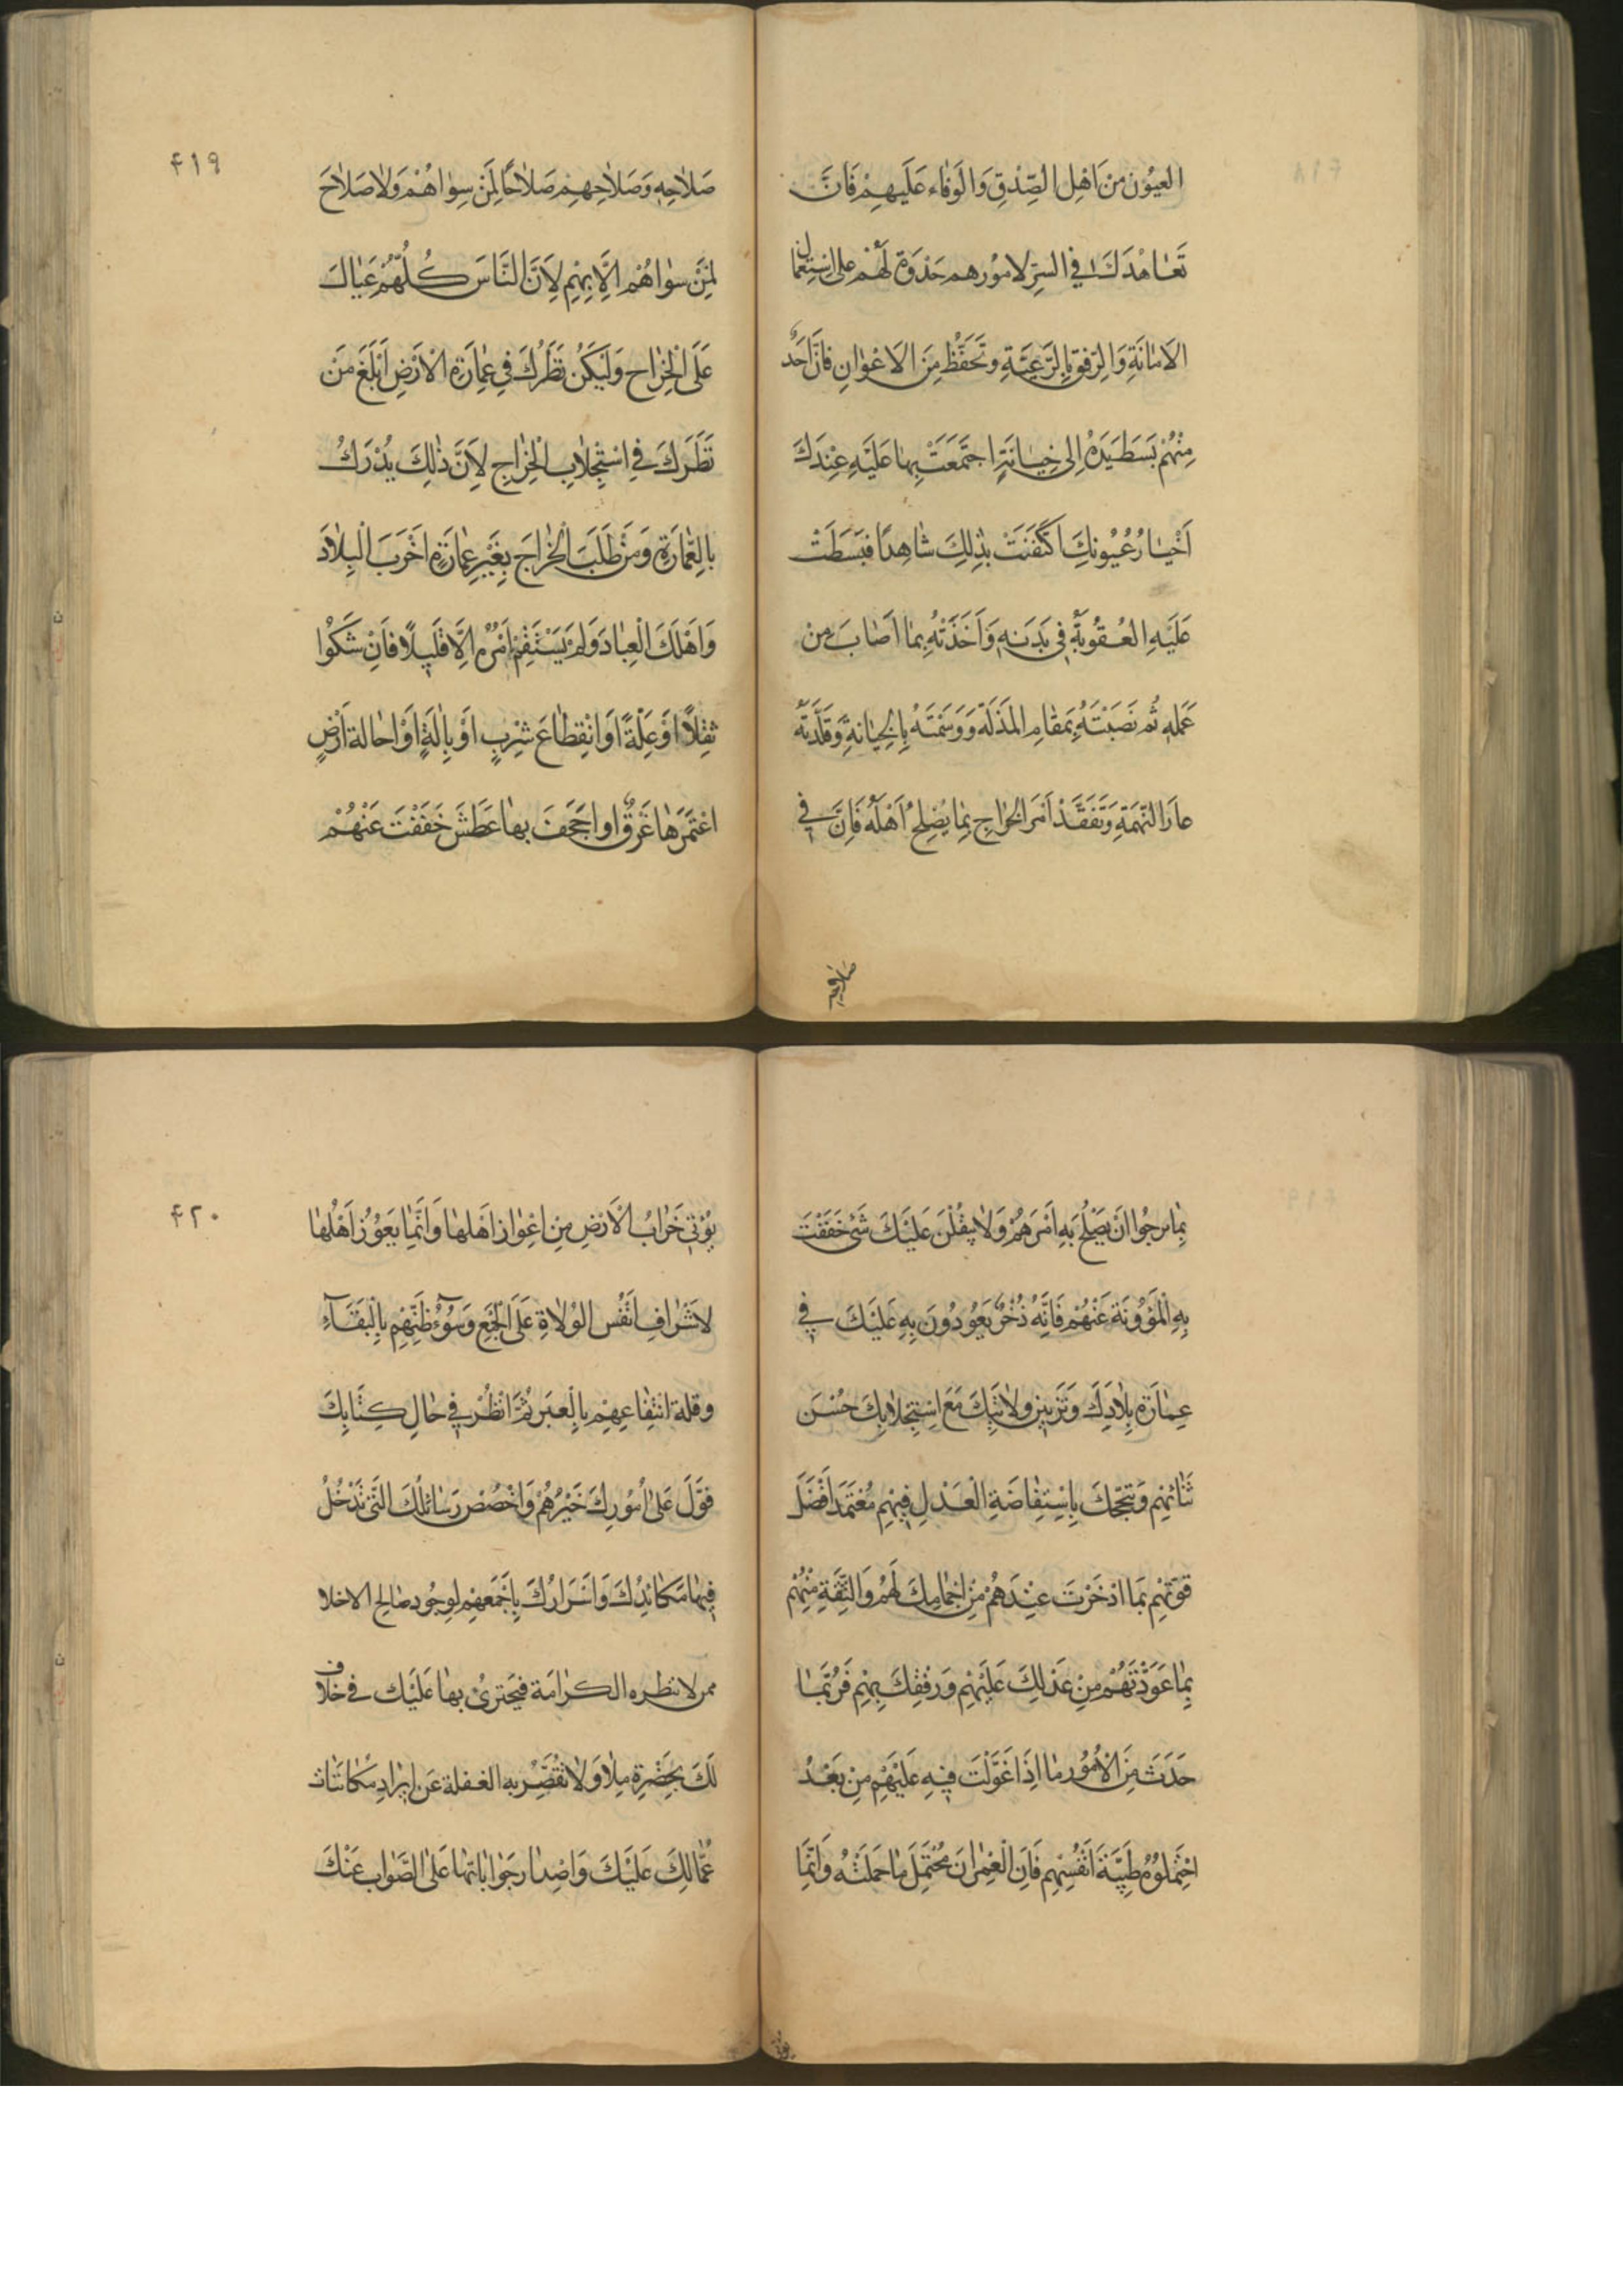 العيون من اهل الصدق والوفاء عليهم فان
تعاهدك في السر لامورهم حدوة لهم على استعمال
الامانة والرفق بالرعية وتحفظ من الاعوان فان احد
منهم بسط يده الى خيانة اجتمعت بها عليه عندك
اخبار عيونك اكتفنت بذلك شاهدا فبسطت
عليه العقوبة في بدنه واخذته بما اصاب من
عمله ثم نصبته بمقام المذلة ووسمته بالخيانة وقلدته
عار التهمة وتفقد امر الخراج بما يصلح اهله فان في
صلاحه
۴۱۹
صلاحه وصلاحهم صلاحا لمن سواهم ولا صلاح
لمن سواهم الا بهم لان الناس كلهم عيال
على الخراج وليكن نظرك في عمارة الارض ابلغ من
نظرك في استجلاب الخراج لان ذلك يدرك
بالعمارة ومن طلب الخراج بغير عمارة اخرب البلاد
واهلك العباد ولم يستقم امره الا قليلا فان شكوا
ثقلا او علة او انقطاع شرب او بالة او احالة ارض
اغتمرها غرق او اجحف بها عطش خففت عنهم
بما ترجوا ان يصلح به امرهم ولا يثقلن عليك شئ خففت
به المؤونة عنهم فانه ذخر يعودون به عليك في
عمارة بلادك وتزيين ولايتك مع استجلابك حسن
ثنائهم وتبجحك باستفاضة العدل فيهم معتمدا فضل
قوتهم بما اذخرت عندهم من اجمامك لهم والثقة منهم
بما عودتهم من عدلك عليهم ورفقك بهم فربما
حدث من الامور ما اذا عولت فيه عليهم من بعد
احتملوه طيبة انفسهم فان العمران محتمل ما حملته وانما
۴۲۰
يؤتى خراب الارض من اعواز اهلها وانما يعوز اهلها
لاشراف انفس الولاة على الجمع وسوء ظنهم بالبقاء
وقلة انتفاعهم بالعبر ثم انظر في حال كتابك
فول على امورك خيرهم واخصص رسائلك التى تدخل
فيها مكائدك واسرارك باجمعهم لوجود صالح الاخلا
ممن لا تبطره الكرامة فيجترئ بها عليك في خلاف
لك بحضرة ملاء ولا تقصر به الغفلة عن ايراد مكاتبات
عمالك عليك واصدار جواباتها على الصواب عنك